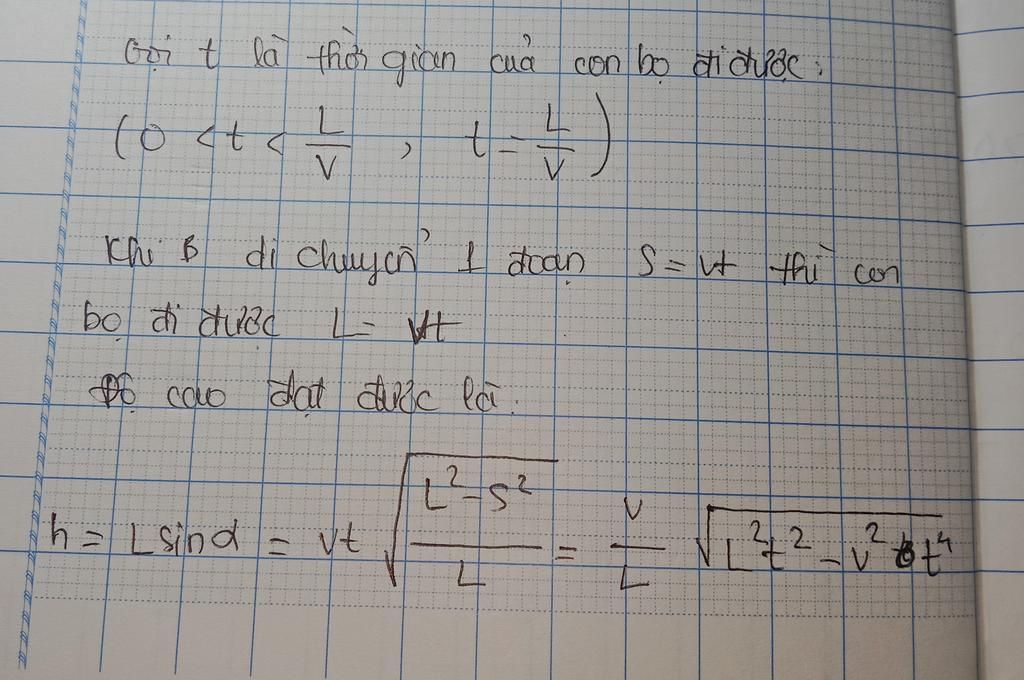 Gọi t là thời gian của con bọ đi được:
(0 < t < L/V , t = L/V)
Khi B di chuyển 1 đoạn S = vt thì con
bọ đi được L = vt
Độ cao đạt được là:
h = L sinα = vt √(L² - S²)/L = V/L √(L²t² - v²t⁴)